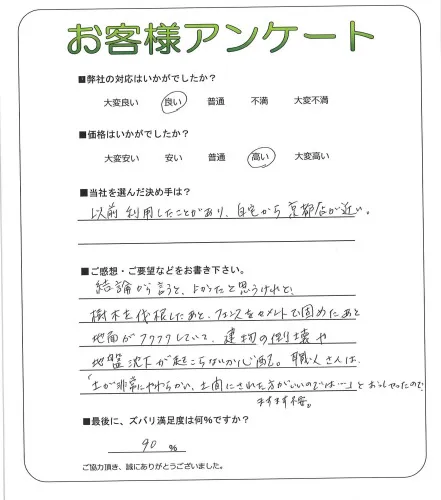 お客様アンケート
■弊社の対応はいかがでしたか?
大変良い 良い 普通 不満 大変不満
■価格はいかがでしたか?
大変安い 安い 普通 高い 大変高い
■当社を選んだ決め手は?
以前利用したことがあり、自宅から京都店が近い。
■ご感想・ご要望などをお書き下さい。
結論から言うと、よかったと思うけれど、
樹木を伐採したあと、フェンスをセメントで固めたあと
地面がフワフワしていて、建物の倒壊や
地盤沈下が起こらないか心配。職人さんは、
「土が非常にやわらかい、土間にされた方がいいのでは…」とおっしゃったので
ますます不安。
■最後に、ズバリ満足度は何%ですか?
90 %
ご協力頂き、誠にありがとうございました。